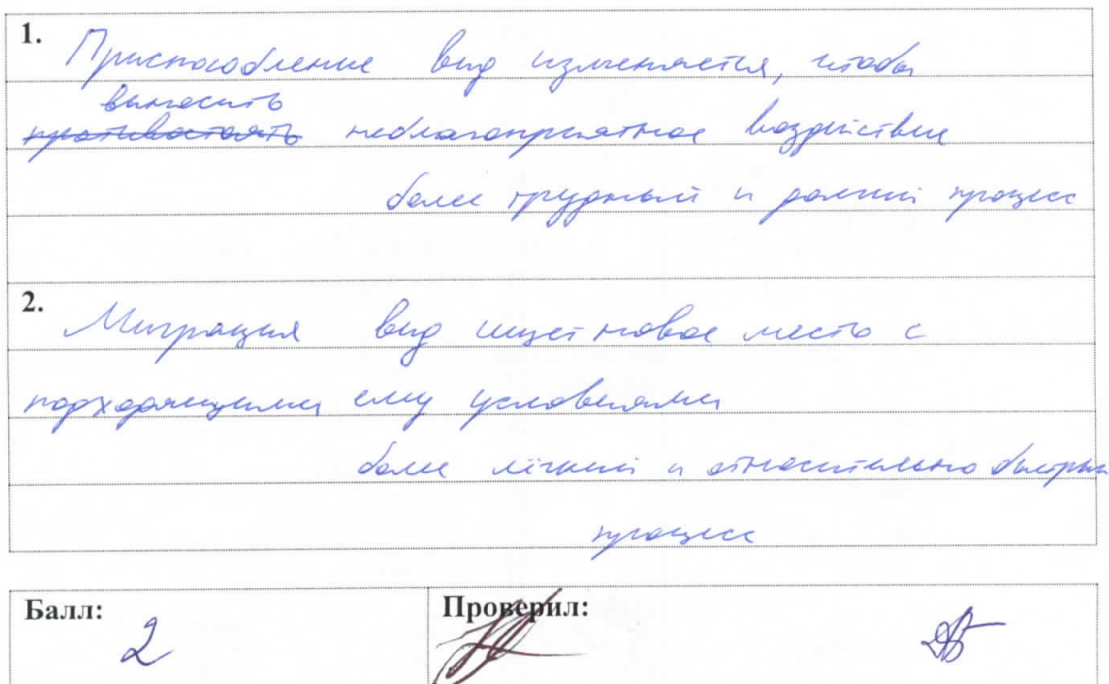 1. Приспособление вид изменяется, чтобы
выносить
противостоять неблагоприятное воздействие
более трудный и долгий процесс
2. Миграция вид ищет новое место с
подходящими ему условиями
более лёгкий и относительно быстрый
процесс
Балл: 2 Проверил: